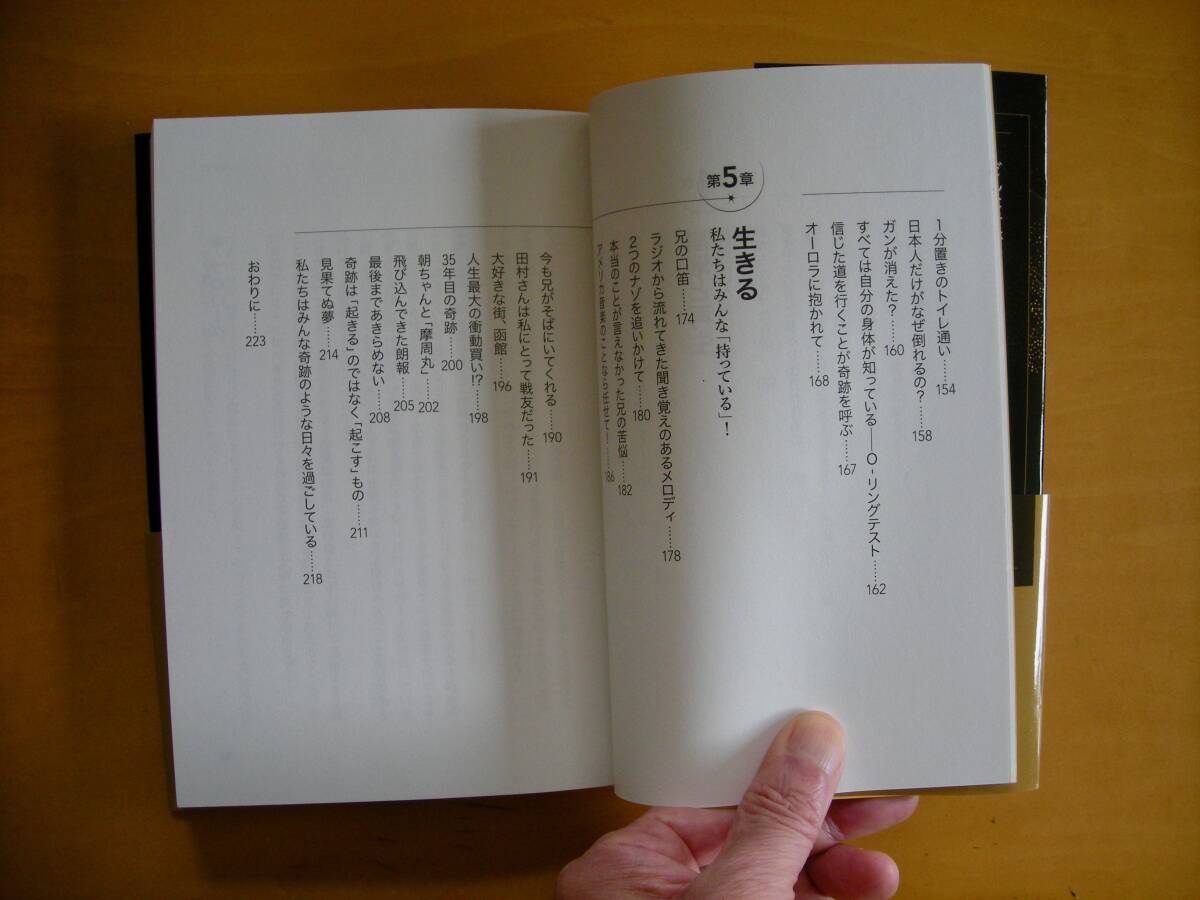 1分置きのトイレ通い……154
日本人だけがなぜ倒れるの？……158
ガンが消えた？……160
すべては自分の身体が知っている──O-リングテスト……162
信じた道を行くことが奇跡を呼ぶ……167
オーロラに抱かれて……168
第5章
生きる
私たちはみんな「持っている」！
兄の口笛……174
ラジオから流れてきた聞き覚えのあるメロディ……178
2つのナゾを追いかけて……180
本当のことが言えなかった兄の苦悩……182
アメリカ音楽のことなら任せて！……186
今も兄がそばにいてくれる……190
田村さんは私にとって戦友だった……191
大好きな街、函館……196
人生最大の衝動買い!?……198
35年目の奇跡……200
朝ちゃんと「摩周丸」……202
飛び込んできた朗報……205
最後まであきらめない……208
奇跡は「起きる」のではなく「起こす」もの……211
見果てぬ夢……214
私たちはみんな奇跡のような日々を過ごしている……218
おわりに……223